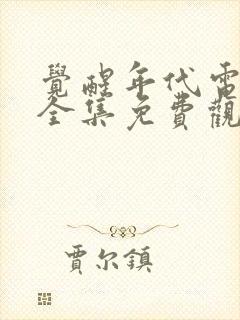 覺醒年代電
全集免費觀
賈尔鎮